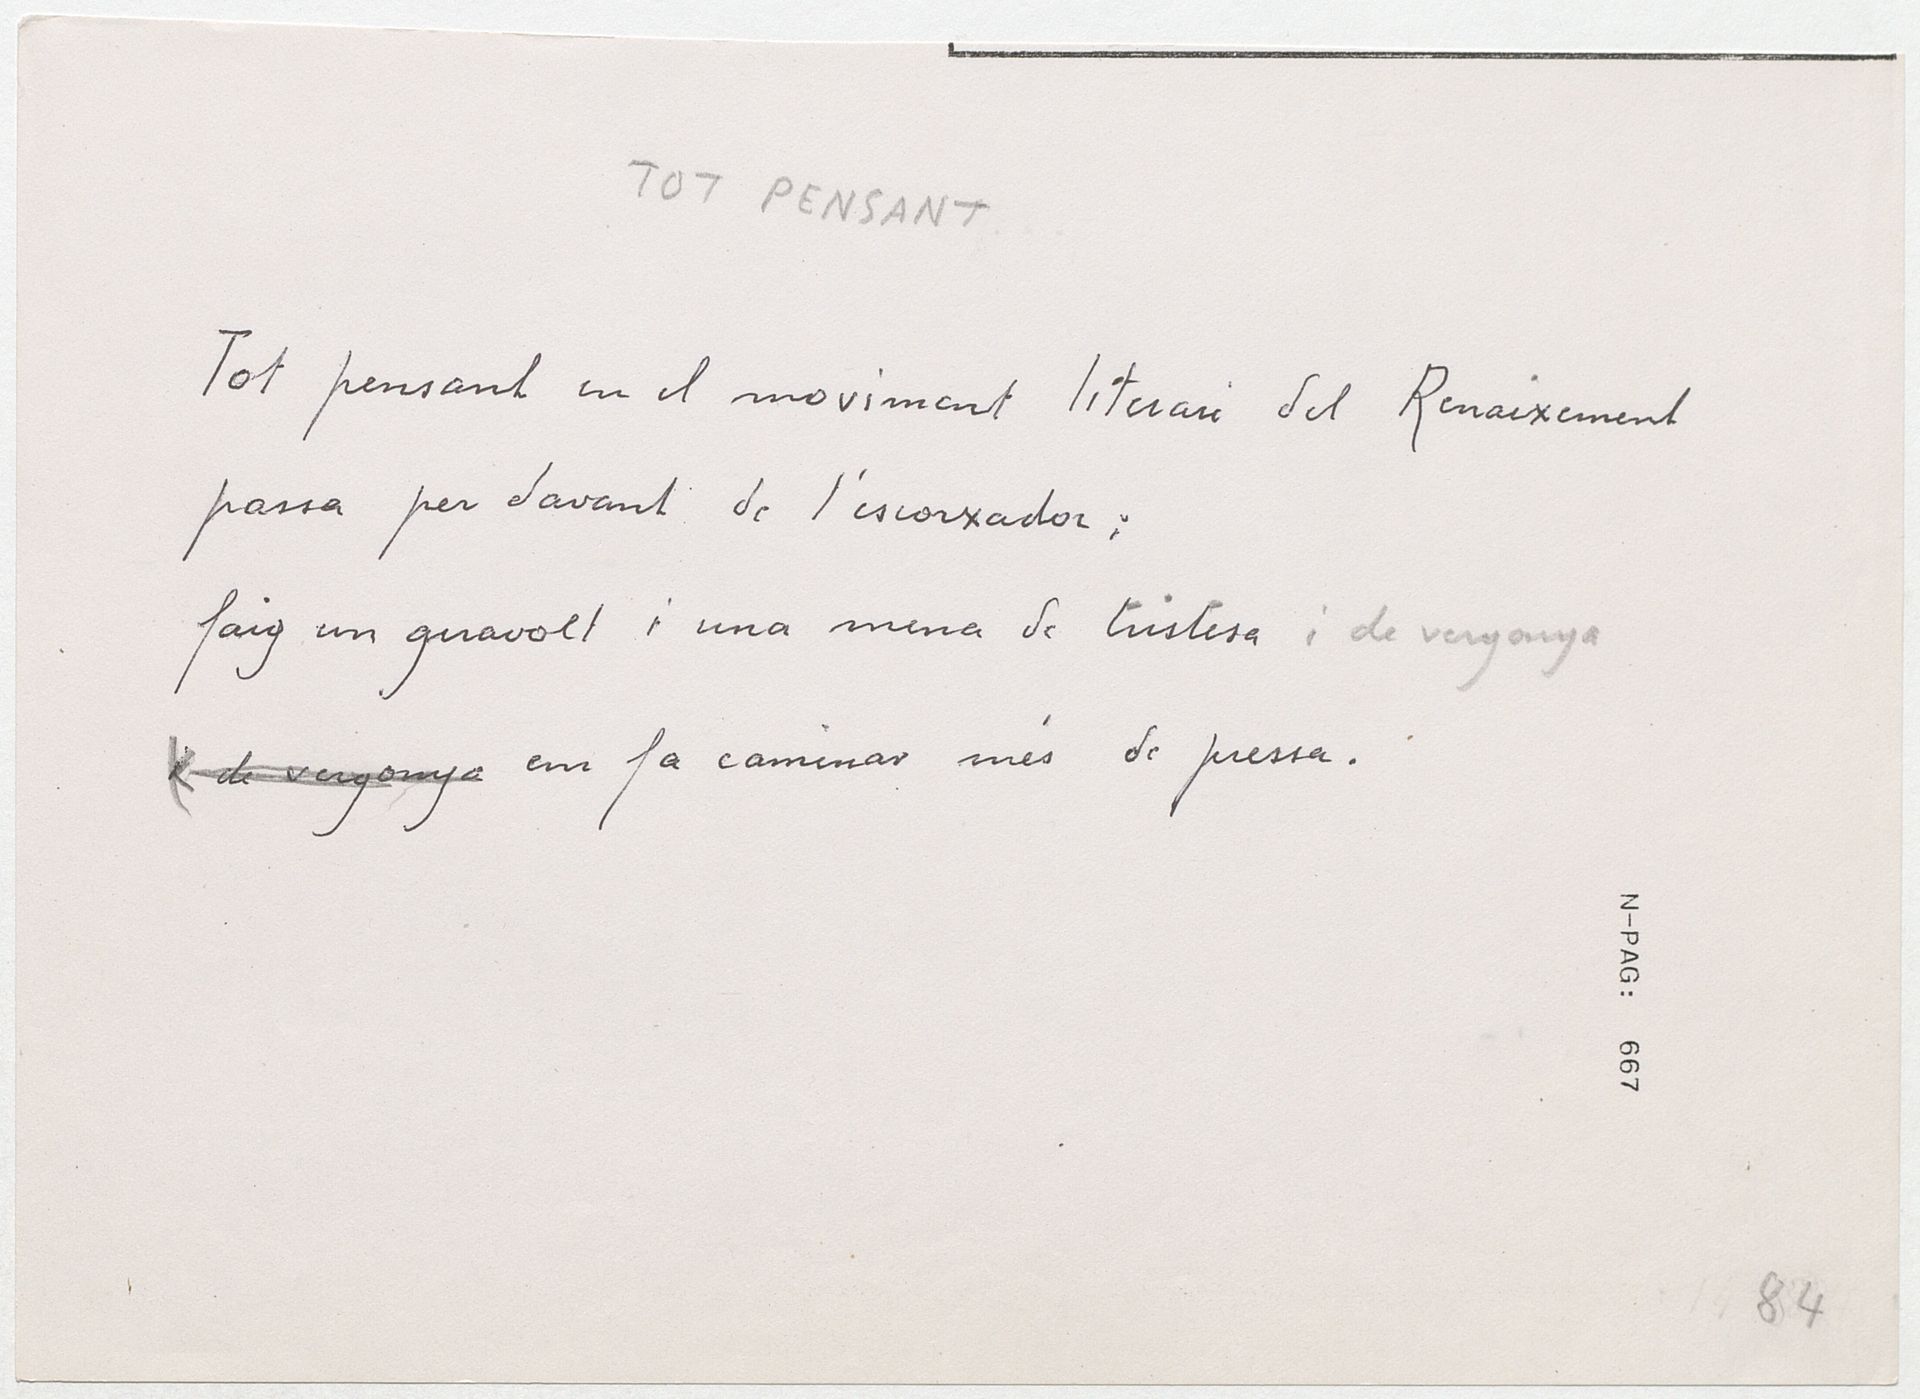 TOT PENSANT
Tot pensant en el moviment literari del Renaixement
passa per davant de l'escorxador;
faig un giravolt i una mena de tristesa i de vergonya
de vergonya em fa caminar més de pressa.
N-PAG: 667
84